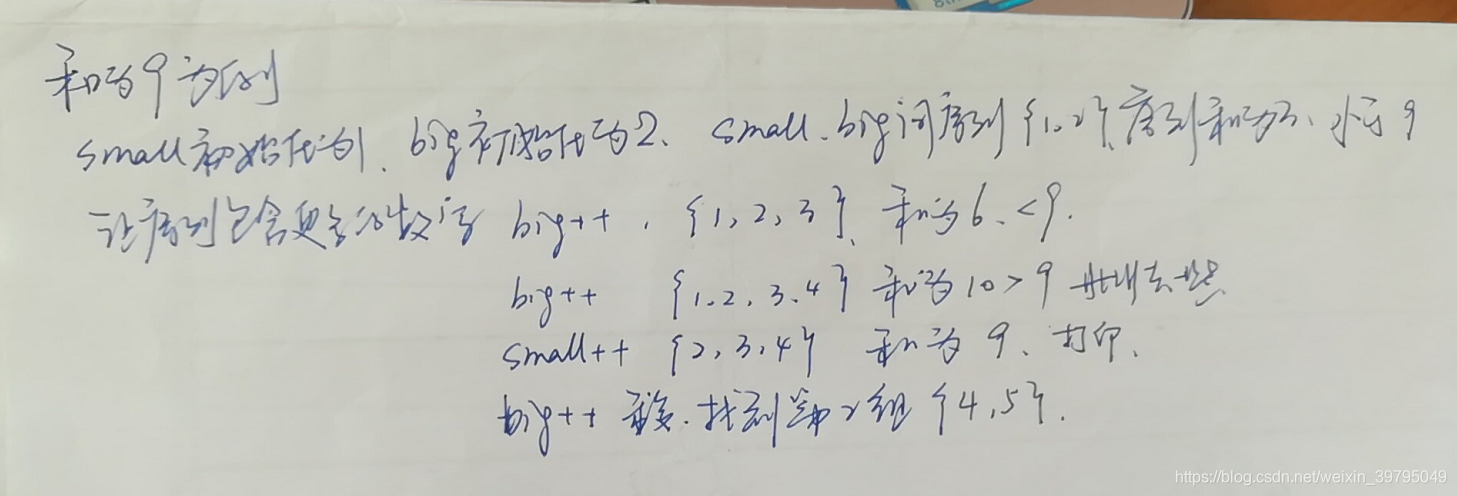 和为9为例
small初始化为1、big初始化为2、small、big间序列{1,2},序列和为3、小于9
让序列包含更多的数字 big++,{1,2,3}、和为6、<9.
big++ {1.2,3.4} 和为10>9 删去些
small++ {2,3,4} 和为9、打印、
big++ 重复.找到第2组{4,5}.
https://blog.csdn.net/weixin_39795049